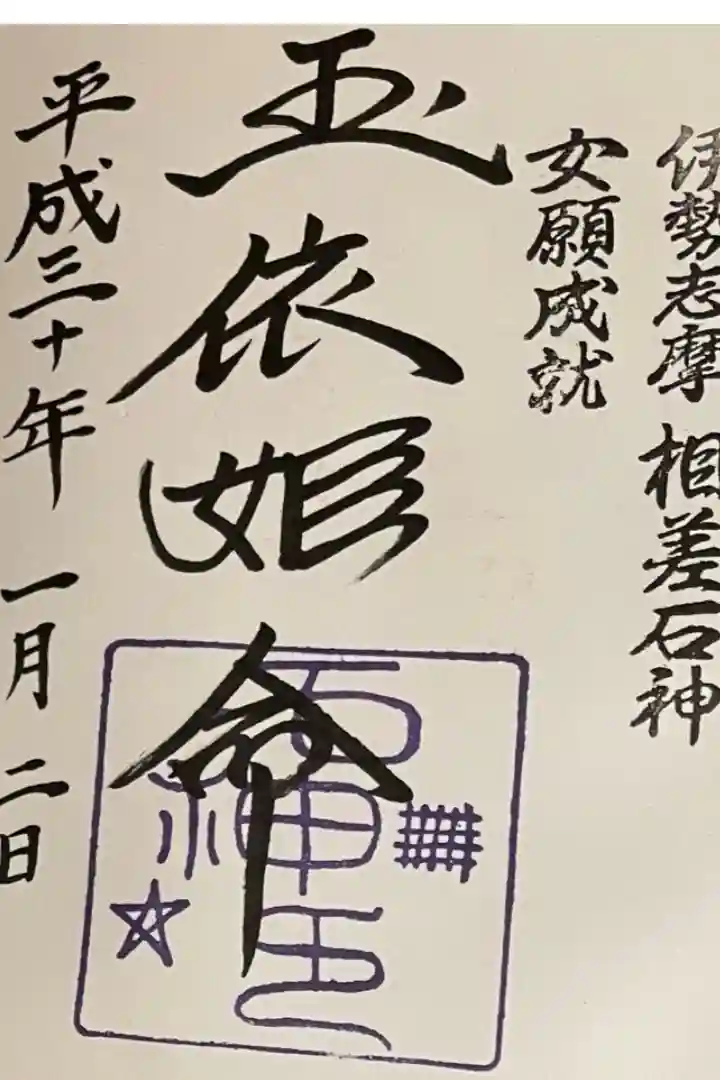 伊勢志摩 相差石神
女願成就
玉依姫命
平成三十年 一月 二日
石神